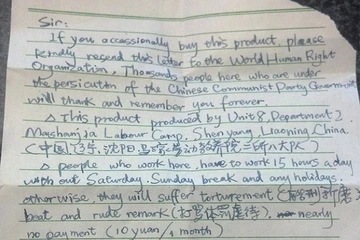 Sir:
If you occassionally buy this product, please
kindly resend this letter to the World Human Right
Organization. Thousands people here who are under
the persicution of the Chinese Communist Party Government
will thank and remember you forever.
△ This product produced by Unit 8, Department 2
Masanjia Labour Camp, Shenyang, Liaoning, China.
(中国, 辽宁, 沈阳, 马三家劳动教养院二所八大队)
△ people who work here, have to work 15 hours a day
with out Saturday, Sunday break and any holidays,
otherwise, they will suffer torturement (酷刑折磨),
beat and rude remark (打骂体罚虐待), nearly
no payment (10 yuan/1 month)